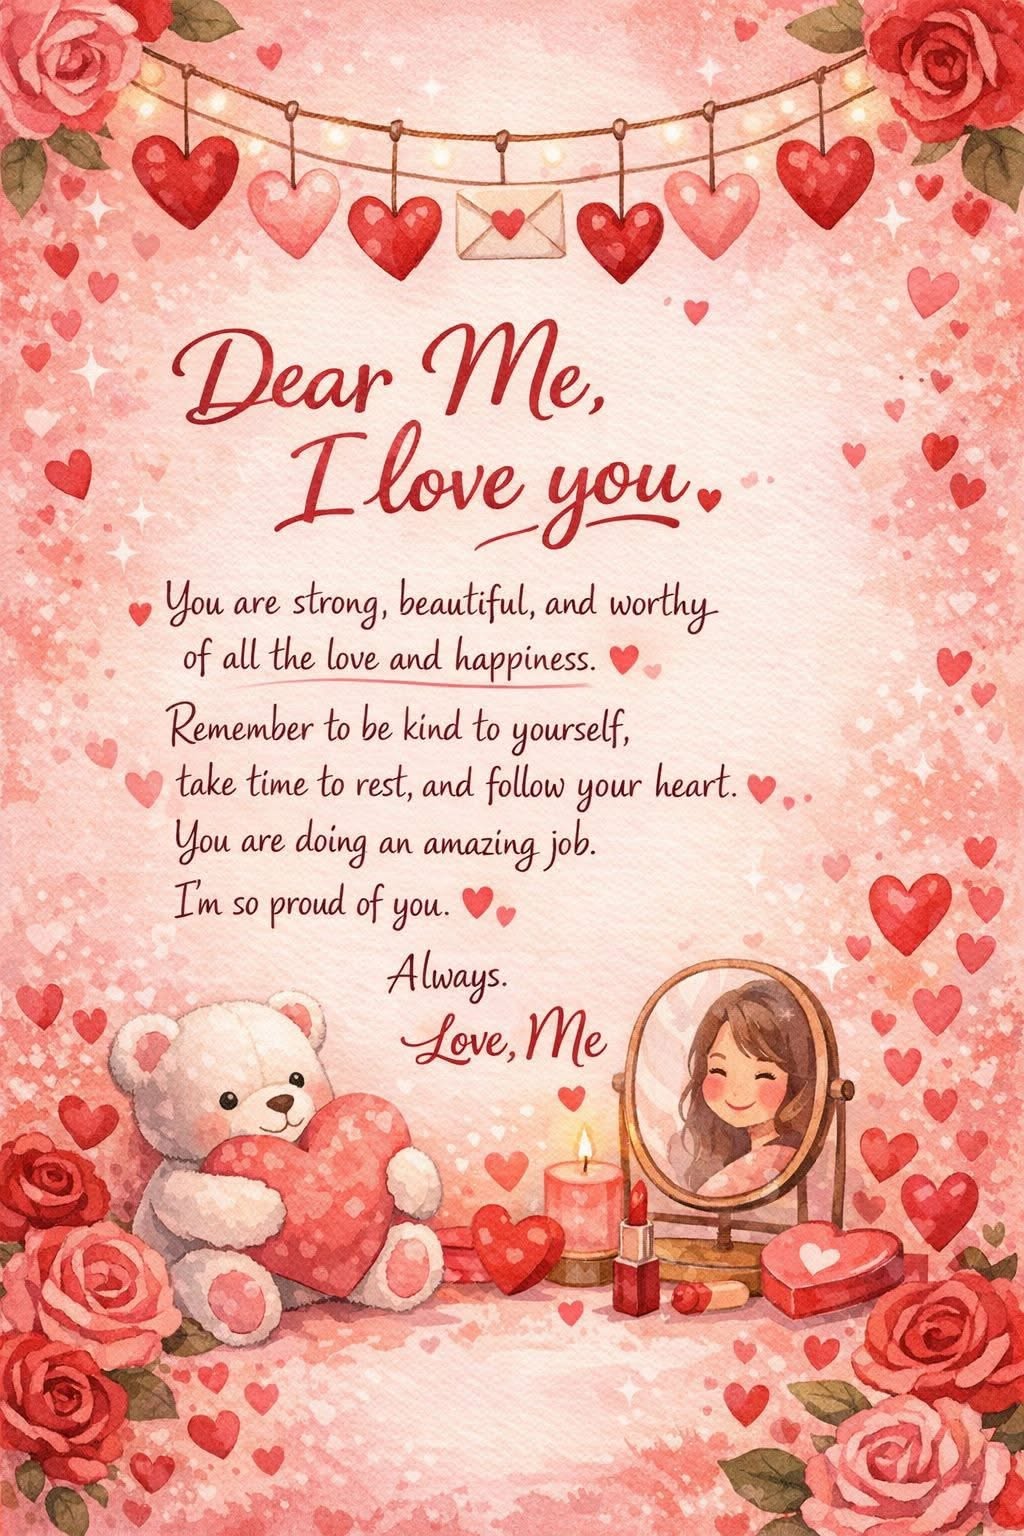 Dear Me,
I love you
You are strong, beautiful, and worthy
of all the love and happiness.
Remember to be kind to yourself,
take time to rest, and follow your heart.
You are doing an amazing job.
I'm so proud of you.
Always.
Love, Me